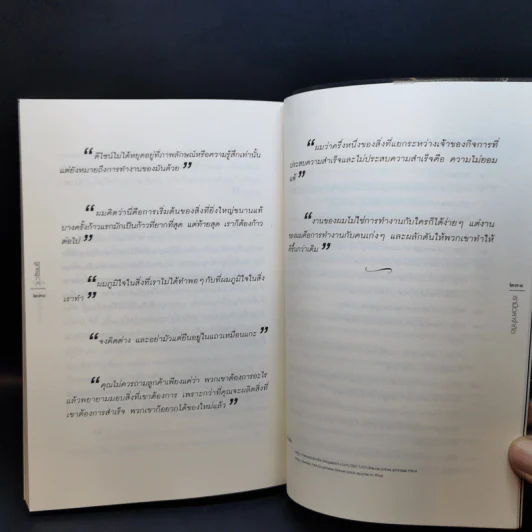 “ดีไซน์ไม่ได้หยุดอยู่ที่ภาพลักษณ์หรือความรู้สึกเท่านั้น
แต่ยังหมายถึงการทำงานของมันด้วย”
“ผมคิดว่านี่คือการเริ่มต้นของสิ่งที่ยิ่งใหญ่ขนานแท้
บางครั้งก้าวแรกมักเป็นก้าวที่ยากที่สุด แต่ท้ายสุด เราก็ต้องก้าว
ต่อไป”
“ผมภูมิใจในสิ่งที่เราไม่ได้ทำพอๆ กับที่ผมภูมิใจในสิ่ง
เราทำ”
“จงคิดต่าง และอย่ามัวแต่ยืนอยู่ในแถวเหมือนแกะ”
“คุณไม่ควรถามลูกค้าเพียงแค่ว่า พวกเขาต้องการอะไร
แล้วพยายามมอบสิ่งที่เขาต้องการ เพราะกว่าที่คุณจะผลิตสิ่งที่
เขาต้องการสำเร็จ พวกเขาก็อยากได้ของใหม่แล้ว”
“ผมว่าครึ่งหนึ่งของสิ่งที่แยกระหว่างเจ้าของกิจการที่
ประสบความสำเร็จและไม่ประสบความสำเร็จคือ ความไม่ยอม
แพ้”
“งานของผมไม่ใช่การทำงานกับใครก็ได้ง่ายๆ แต่งาน
ของผมคือการทำงานกับคนเก่งๆ และผลักดันให้พวกเขาทำให้
ดีขึ้นกว่าเดิม”